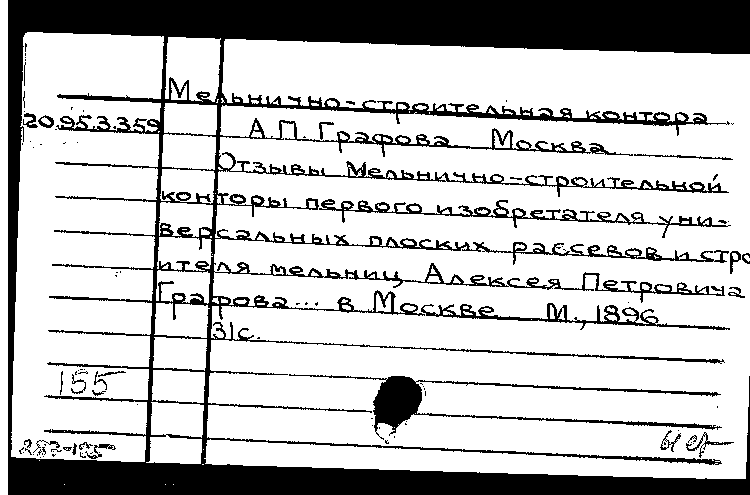 Мельнично-строительная контора
20.95.3.359 А.П. Графова. Москва.
Отзывы Мельнично-строительной
конторы первого изобретателя уни-
версальных плоских рассевов и стро
ителя мельниц Алексея Петровича
Графова... в Москве. М., 1896.
31с.
155